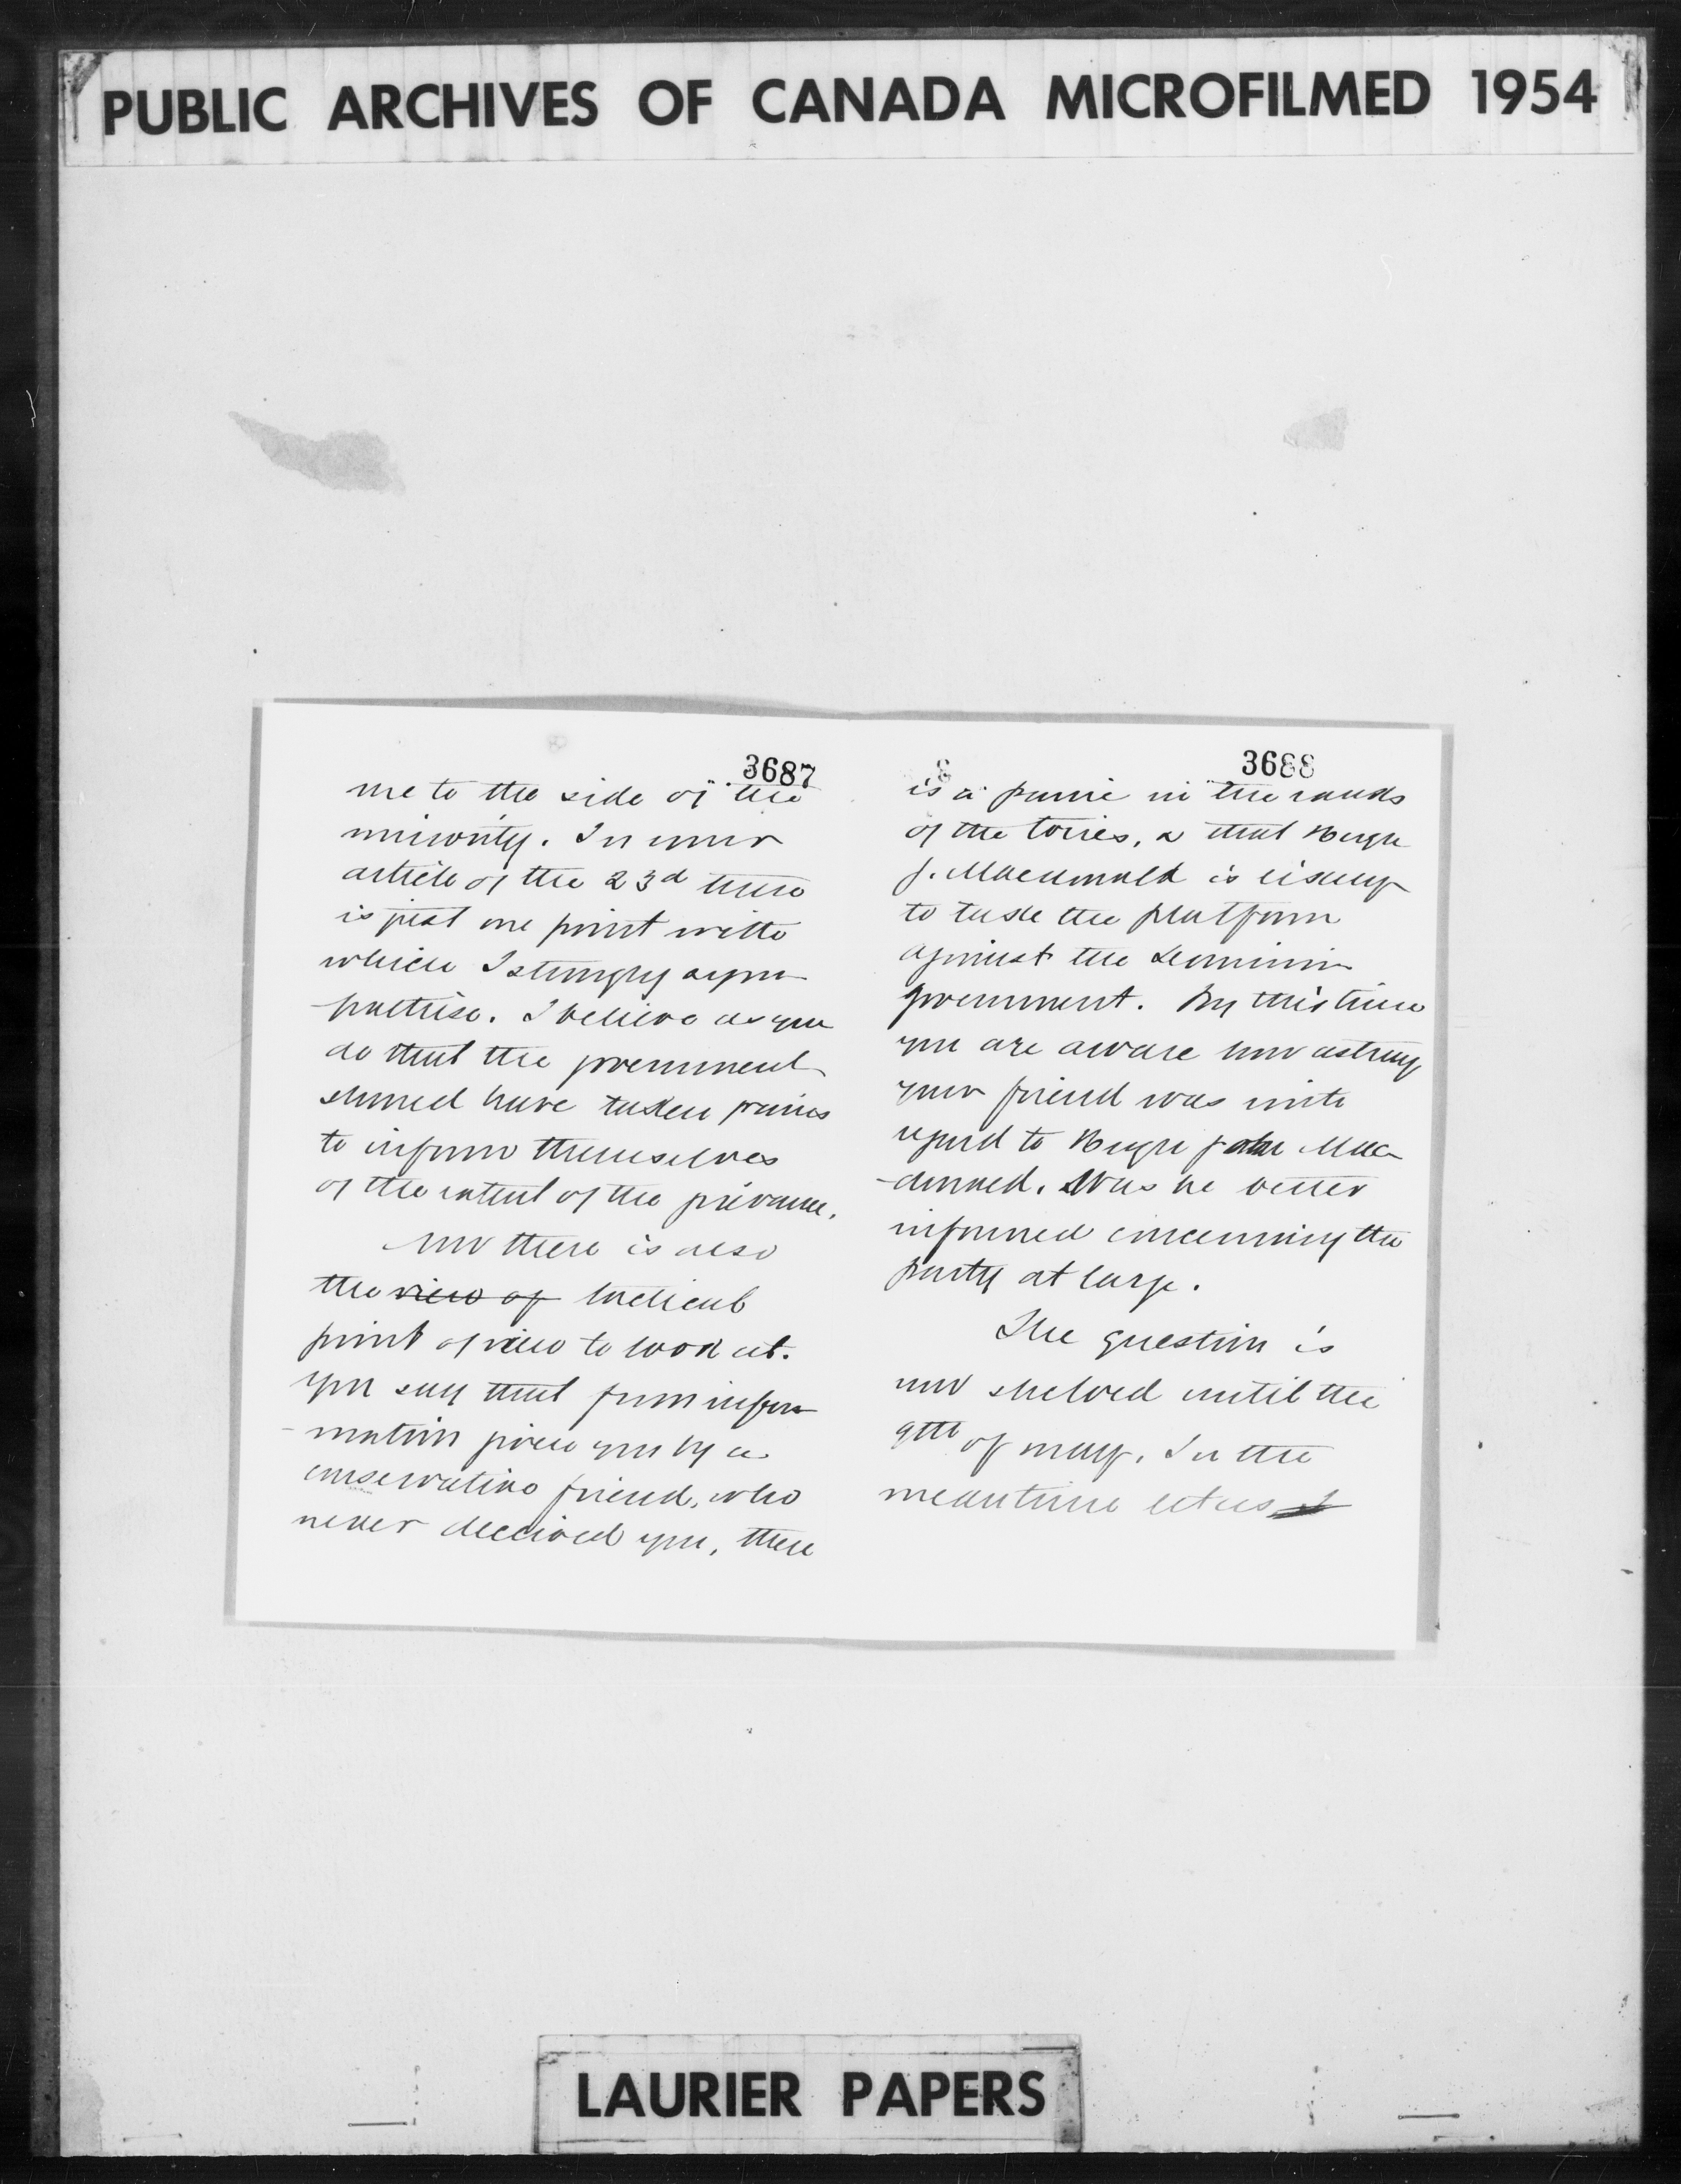 PUBLIC ARCHIVES OF CANADA MICROFILMED 1954
3687
me to the side of the
minority. In your
article of the 23d there
is just one point with
which I strongly sym
-pathise. I believe as you
do that the government
should have taken pains
to inform themselves
of the extent of the grievance.
Now there is also
the view of tactical
point of view to look at.
You say that from infor
-mation given you by a
conservative friend, who
never deceived you, there
3688
is a panic in the ranks
of the tories, & that Hugh
J. Macdonald is
to take the platform
against the Dominion
government. By this time
you are aware how astray
your friend was with
regard to Hugh John Mac
-donald. Was he better
informed concerning the
party at large.
The question is
now shelved until the
9th of may. In the
meantime let us
LAURIER PAPERS